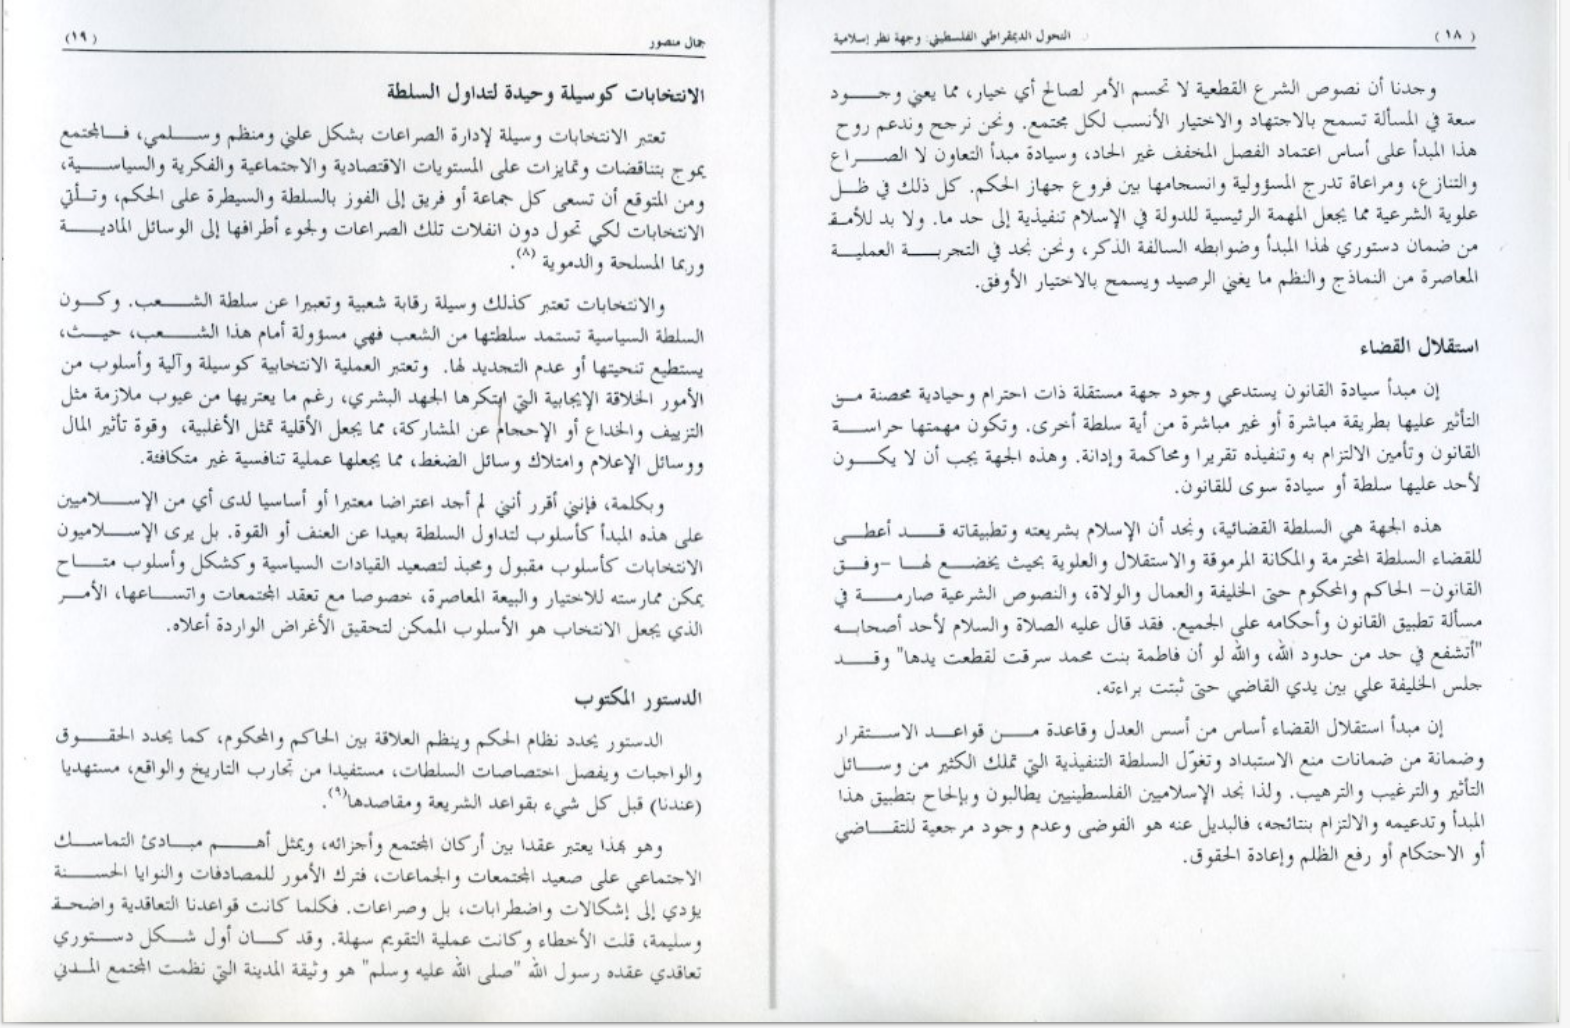 (١٨) التحول الديمقراطي الفلسطيني: وجهة نظر إسلامية
وجدنا أن نصوص الشرع القطعية لا تحسم الأمر لصالح أي خيار، مما يعني وجود
سعة في المسألة تسمح بالاجتهاد والاختيار الأنسب لكل مجتمع. ونحن نرجح وندعم روح
هذا المبدأ على أساس اعتماد الفصل المخفف غير الحاد، وسيادة مبدأ التعاون لا الصراع
والتنازع، ومراعاة تدرج المسؤولية وانسجامها بين فروع جهاز الحكم. كل ذلك في ظل
علوية الشرعية مما يجعل المهمة الرئيسية للدولة في الإسلام تنفيذية إلى حد ما. ولا بد للأمة
من ضمان دستوري لهذا المبدأ وضوابطه السالفة الذكر، ونحن نجد في التجربة العملية
المعاصرة من النماذج والنظم ما يغني الرصيد ويسمح بالاختيار الأوفق.
استقلال القضاء
إن مبدأ سيادة القانون يستدعي وجود جهة مستقلة ذات احترام وحيادية محصنة من
التأثير عليها بطريقة مباشرة أو غير مباشرة من أية سلطة أخرى. وتكون مهمتها حراسة
القانون وتأمين الالتزام به وتنفيذه تقريرا ومحاكمة وإدانة. وهذه الجهة يجب أن لا يكون
لأحد عليها سلطة أو سيادة سوى للقانون.
هذه الجهة هي السلطة القضائية، ونجد أن الإسلام بشريعته وتطبيقاته قد أعطى
للقضاء السلطة المحترمة والمكانة المرموقة والاستقلال والعلوية بحيث يخضع لها -وفق
القانون- الحاكم والمحكوم حتى الخليفة والعمال والولاة، والنصوص الشرعية صارمة في
مسألة تطبيق القانون وأحكامه على الجميع. فقد قال عليه الصلاة والسلام لأحد أصحابه
"أتشفع في حد من حدود الله، والله لو أن فاطمة بنت محمد سرقت لقطعت يدها" وقد
جلس الخليفة علي بين يدي القاضي حتى ثبتت براءته.
إن مبدأ استقلال القضاء أساس من أسس العدل وقاعدة من قواعد الاستقرار
وضمانة من ضمانات منع الاستبداد وتغوّل السلطة التنفيذية التي تملك الكثير من وسائل
التأثير والترغيب والترهيب. ولذا نجد الإسلاميين الفلسطينيين يطالبون وبإلحاح بتطبيق هذا
المبدأ وتدعيمه والالتزام بنتائجه، فالبديل عنه هو الفوضى وعدم وجود مرجعية للتقاضي
أو الاحتكام أو رفع الظلم وإعادة الحقوق.
جمال منصور (١٩)
الانتخابات كوسيلة وحيدة لتداول السلطة
تعتبر الانتخابات وسيلة لإدارة الصراعات بشكل علني ومنظم وسلمي، فالمجتمع
يموج بتناقضات وتمايزات على المستويات الاقتصادية والاجتماعية والفكرية والسياسية،
ومن المتوقع أن تسعى كل جماعة أو فريق إلى الفوز بالسلطة والسيطرة على الحكم، وتأتي
الانتخابات لكي تحول دون انفلات تلك الصراعات ولجوء أطرافها إلى الوسائل المادية
وربما المسلحة والدموية (٨).
والانتخابات تعتبر كذلك وسيلة رقابة شعبية وتعبيرا عن سلطة الشعب. وكون
السلطة السياسية تستمد سلطتها من الشعب فهي مسؤولة أمام هذا الشعب، حيث،
يستطيع تنحيتها أو عدم التجديد لها. وتعتبر العملية الانتخابية كوسيلة وآلية وأسلوب من
الأمور الخلاقة الإيجابية التي ابتكرها الجهد البشري، رغم ما يعتريها من عيوب ملازمة مثل
التزييف والخداع أو الإحجام عن المشاركة، مما يجعل الأقلية تمثل الأغلبية، وقوة تأثير المال
ووسائل الإعلام وامتلاك وسائل الضغط، مما يجعلها عملية تنافسية غير متكافئة.
وبكلمة، فإنني أقرر أنني لم أجد اعتراضا معتبرا أو أساسيا لدى أي من الإسلاميين
على هذه المبدأ كأسلوب لتداول السلطة بعيدا عن العنف أو القوة. بل يرى الإسلاميون
الانتخابات كأسلوب مقبول ومحبذ لتصعيد القيادات السياسية وكشكل وأسلوب متاح
يمكن ممارسته للاختيار والبيعة المعاصرة، خصوصا مع تعقد المجتمعات واتساعها، الأمر
الذي يجعل الانتخاب هو الأسلوب الممكن لتحقيق الأغراض الواردة أعلاه.
الدستور المكتوب
الدستور يحدد نظام الحكم وينظم العلاقة بين الحاكم والمحكوم، كما يحدد الحقوق
والواجبات ويفصل اختصاصات السلطات، مستفيدا من تجارب التاريخ والواقع، مستهديا
(عندنا) قبل كل شيء بقواعد الشريعة ومقاصدها(٩).
وهو بهذا يعتبر عقدا بين أركان المجتمع وأجزائه، ويمثل أهم مبادئ التماسك
الاجتماعي على صعيد المجتمعات والجماعات، فترك الأمور للمصادفات والنوايا الحسنة
يؤدي إلى إشكالات واضطرابات، بل وصراعات. فكلما كانت قواعدنا التعاقدية واضحة
وسليمة، قلت الأخطاء وكانت عملية التقويم سهلة. وقد كان أول شكل دستوري
تعاقدي عقده رسول الله "صلى الله عليه وسلم" هو وثيقة المدينة التي نظمت المجتمع المدني